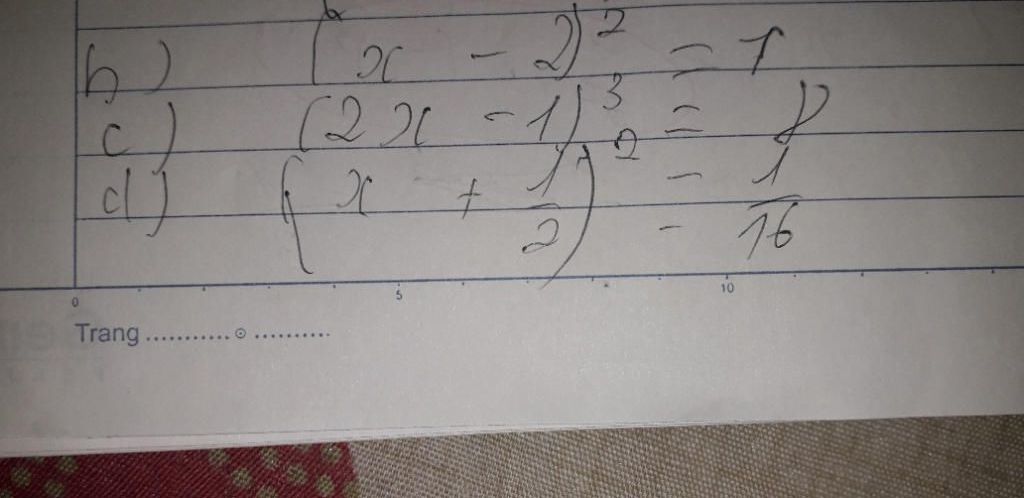 b) (x - 2)² = 1
c) (2x - 1)³ = 8
d) (x + 1/2)² = 1/16
0 5 10
Trang ...........⊙..........